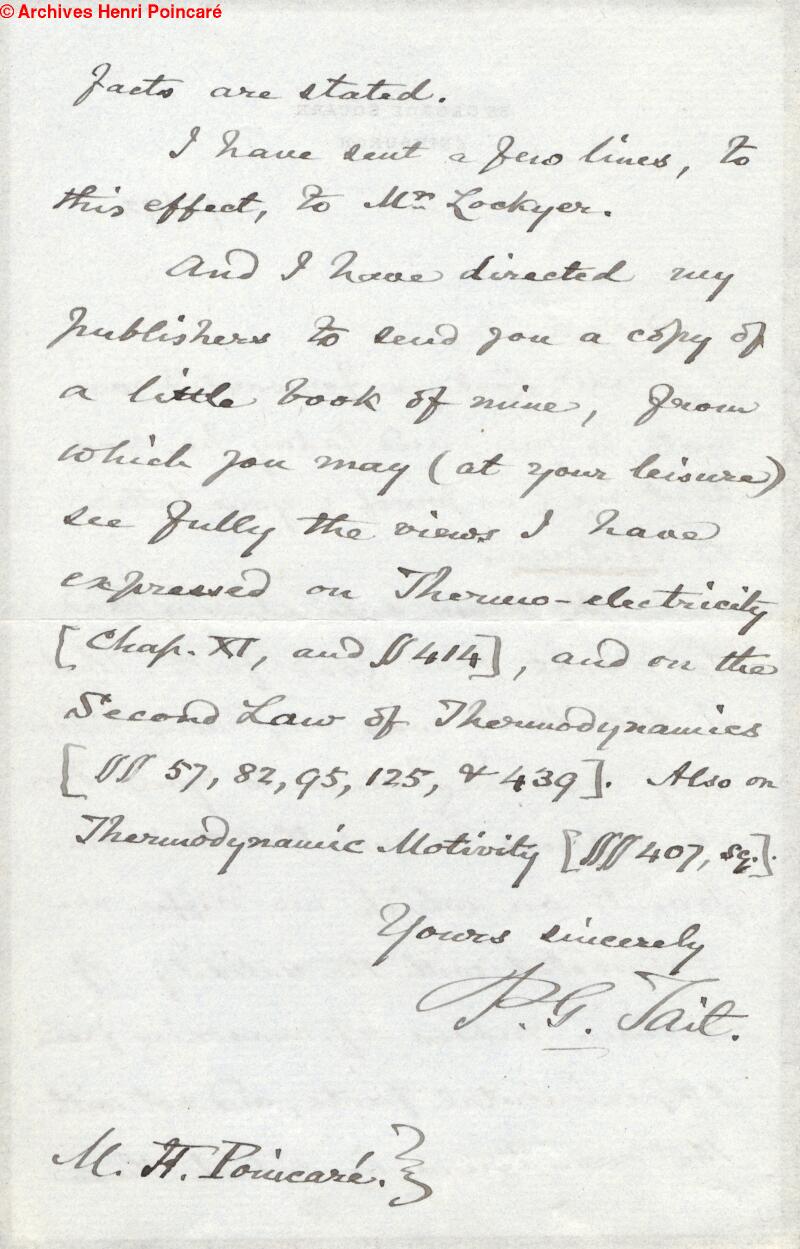 © Archives Henri Poincaré
facts are stated.
I have sent a few lines, to
this effect, to Mr. Lockyer.
And I have directed my
publishers to send you a copy of
a little book of mine, from
which you may (at your leisure)
see fully the views I have
expressed on Thermo-electricity
[Chap. XI, and §414], and on the
Second Law of Thermodynamics
[§§ 57, 82, 95, 125, & 439]. Also on
Thermodynamic Motivity [§§ 407, sq.].
Yours sincerely
P. G. Tait.
M. H. Poincaré.}